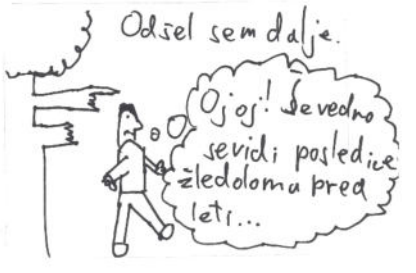 Odšel sem dalje.
Ojoj! Še vedno
se vidi posledice
žledoloma pred
leti...